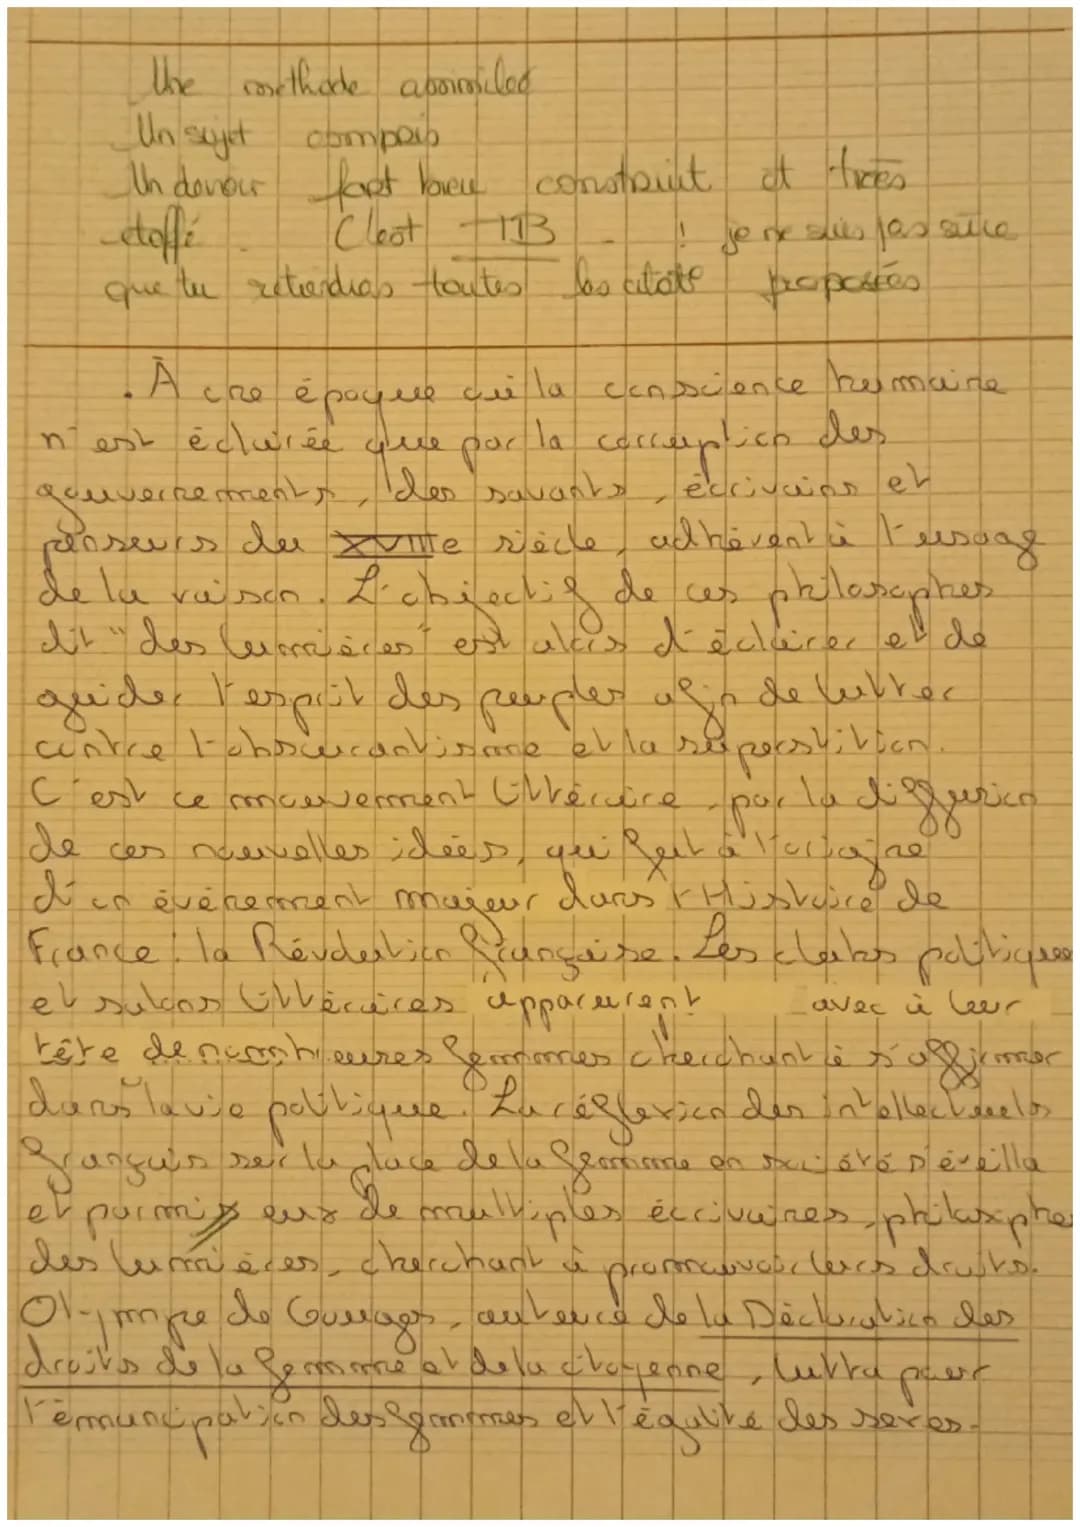 Une méthode assimilée
Un sujet compris
Un devoir fort bien construit et très
étoffé. C'est TB ! je ne suis pas sûre
que tu retiendras toutes les citat° proposées
. À une époque où la conscience humaine
n'est éclairée que par la corruption des
gouvernements, des savants, écrivains et
penseurs du XVIIIe siècle, adhèrent à l'usage
de la raison. L'objectif de ces philosophes
dit "des lumières" est alors d'éclairer et de
guider l'esprit des peuples afin de lutter
contre l'obscurantisme et la superstition.
C'est ce mouvement littéraire, par la diffusion
de ces nouvelles idées, qui fut à l'origine
d'un événement majeur dans l'Histoire de
France : la Révolution française. Les clubs politiques
et salons littéraires apparurent avec à leur
tête de nombreuses femmes cherchant à s'affirmer
dans la vie politique. La réflexion des intellectuels
français sur la place de la femme en société s'éveilla
et parmis eux de multiples écrivaines, philosophes
des lumières, cherchant à promouvoir leurs droits.
Olympe de Gouges, auteure de la Déclaration des
droits de la femme et de la citoyenne, lutta pour
l'émancipation des femmes et l'égalité des sexes.